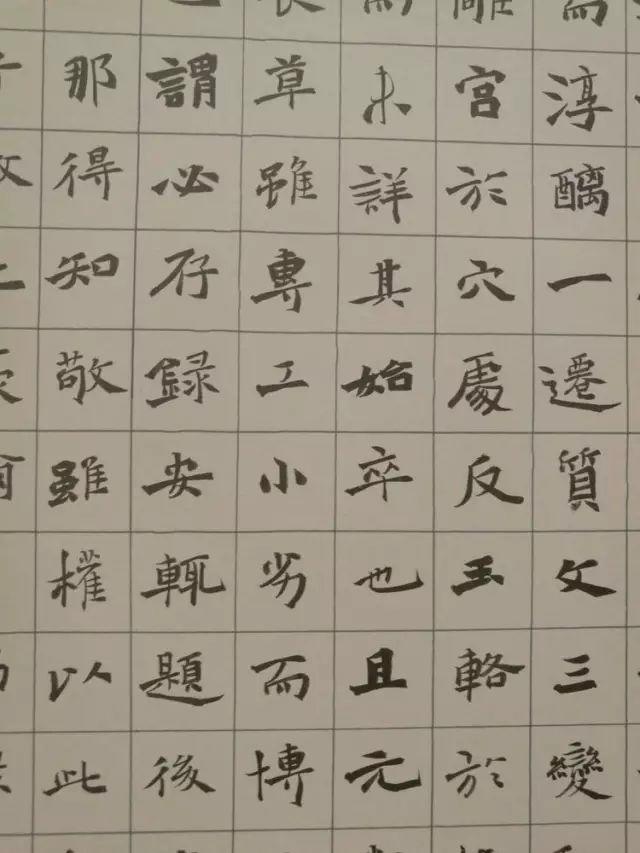 而淳醨一遷質文三變
雕宮於穴處反玉輅於
未詳其始卒也且元
草雖專工小劣而博
謂必存録安輒題後
那得知敬雖權以此